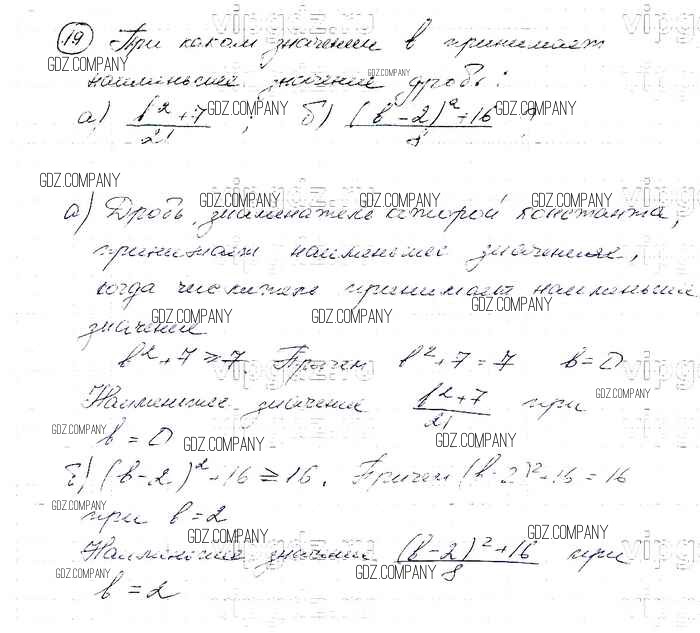 19 При каком значении b принимает
наименьшее значение дробь:
а) (b² + 7)/21 ; б) ((b - 2)² + 16)/8
а) Дробь, знаменатель которой константа,
принимает наименьшее значение,
когда числитель принимает наименьшее
значение
b² + 7 ≥ 7. Причем b² + 7 = 7 b = 0
Наименьшее значение (b² + 7)/21 при
b = 0
б) (b - 2)² + 16 ≥ 16. Причем (b - 2)² + 16 = 16
при b = 2
Наименьшее значение ((b - 2)² + 16)/8 при
b = 2
GDZ.COMPANY
vipgdz.ru